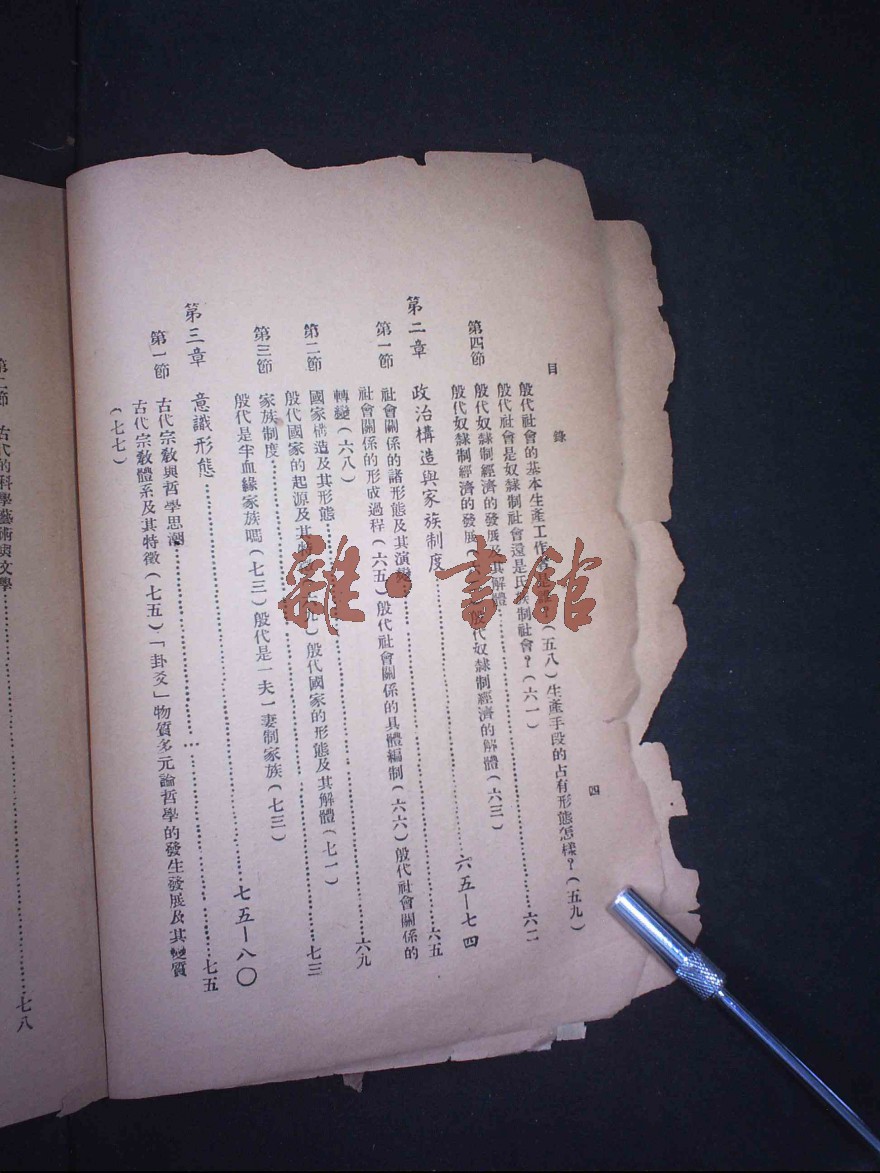 目錄
四
殷代社會的基本生產工作者是(五八)生產手段的占有形態怎樣?(五九)
殷代社會是奴隸制社會還是氏族制社會?(六一)
第四節 殷代奴隸制經濟的發展及其解體……六二
殷代奴隸制經濟的發展 殷代奴隸制經濟的解體(六三)
第二章 政治構造與家族制度……六五—七四
第一節 社會關係的諸形態及其演變……六五
社會關係的形成過程(六五)殷代社會關係的具體編制(六六)殷代社會關係的
轉變(六八)
第二節 國家構造及其形態……六九
殷代國家的起源及其特 九)殷代國家的形態及其解體(七一)
第三節 家族制度……七三
殷代是半血緣家族嗎(七三)殷代是一夫一妻制家族(七三)
第三章 意識形態……七五—八〇
第一節 古代宗教與哲學思潮……七五
古代宗教體系及其特徵(七五)「卦爻」物質多元論哲學的發生發展及其變質
(七七)
第二節 古代的科學藝術與文學……七八
雜·書館